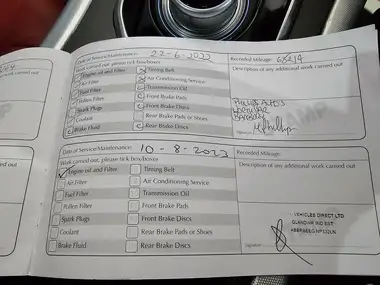 Date of Service/Maintenance: 22-6-2022
Recorded Mileage: 68214
Work carried out, please tick box/boxes
Description of any additional work carried out
Engine oil and Filter
Timing Belt
Air Filter
Air Conditioning Service
Fuel Filter
Transmission Oil
Pollen Filter
Front Brake Pads
Spark Plugs
Front Brake Discs
Coolant
Rear Brake Pads or Shoes
Brake Fluid
Rear Brake Discs
Signature
Date of Service/Maintenance: 10-8-2023
Recorded Mileage:
Work carried out, please tick box/boxes
Description of any additional work carried out
Engine oil and Filter
Timing Belt
Air Filter
Air Conditioning Service
Fuel Filter
Transmission Oil
Pollen Filter
Front Brake Pads
Spark Plugs
Front Brake Discs
Coolant
Rear Brake Pads or Shoes
Brake Fluid
Rear Brake Discs
VEHICLES DIRECT LTD
Signature